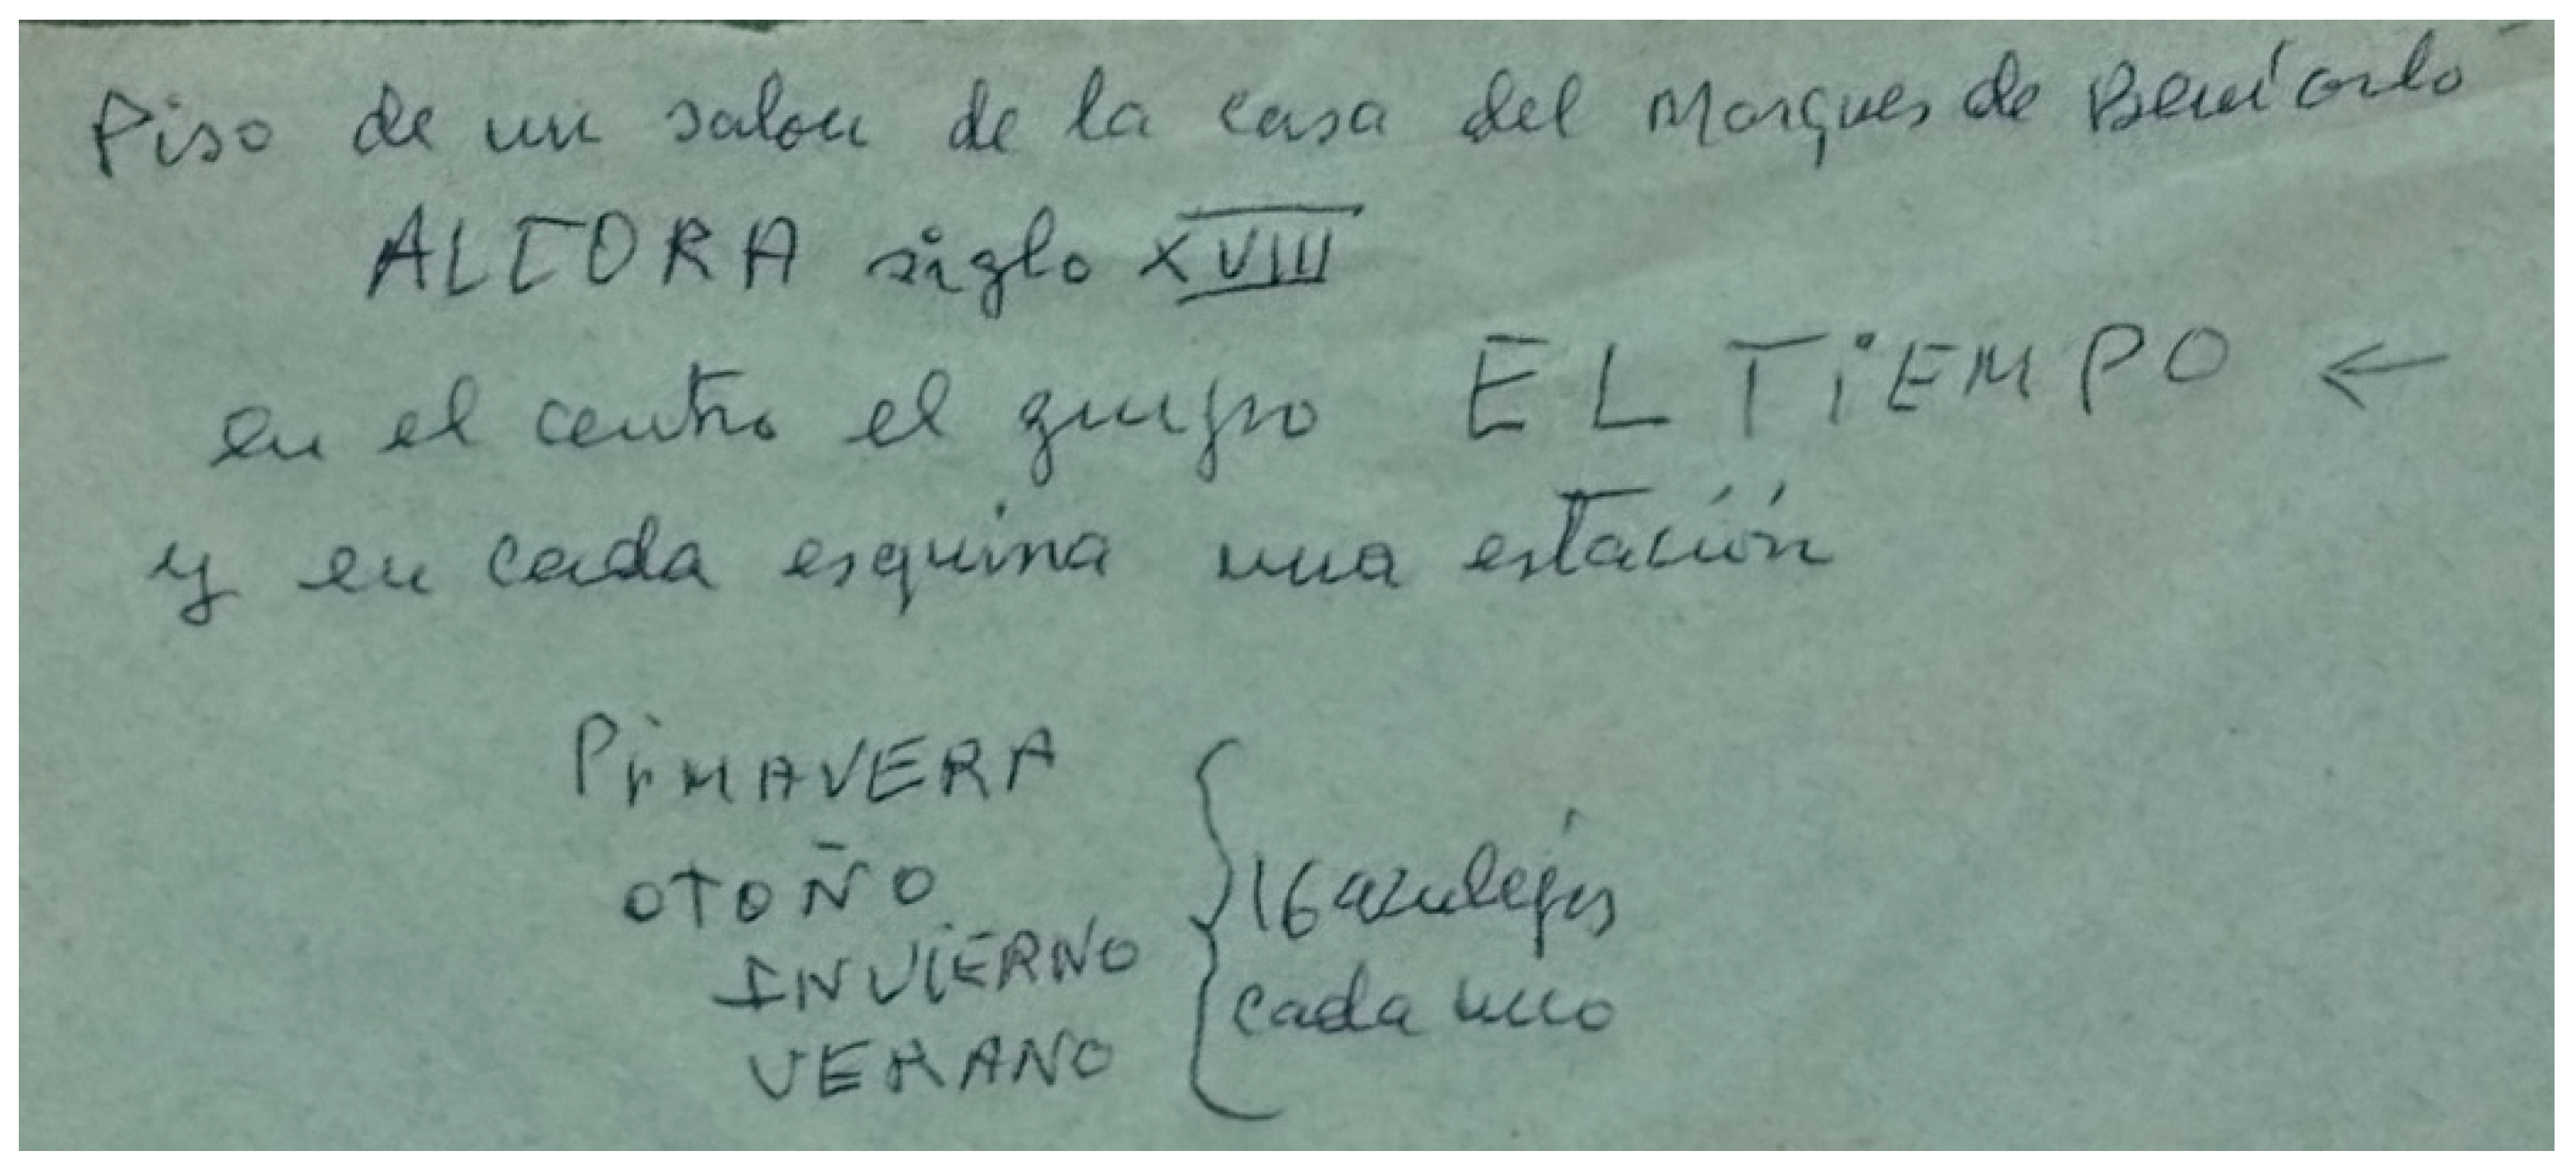 Piso de un salon de la casa del Marques de Benicarlo
ALCORA siglo XVIII
en el centro el grupo EL TIEMPO ←
y en cada esquina una estación
PrimAVERA
OTOÑO
INVIERNO
VERANO
16 azulejos
cada uno